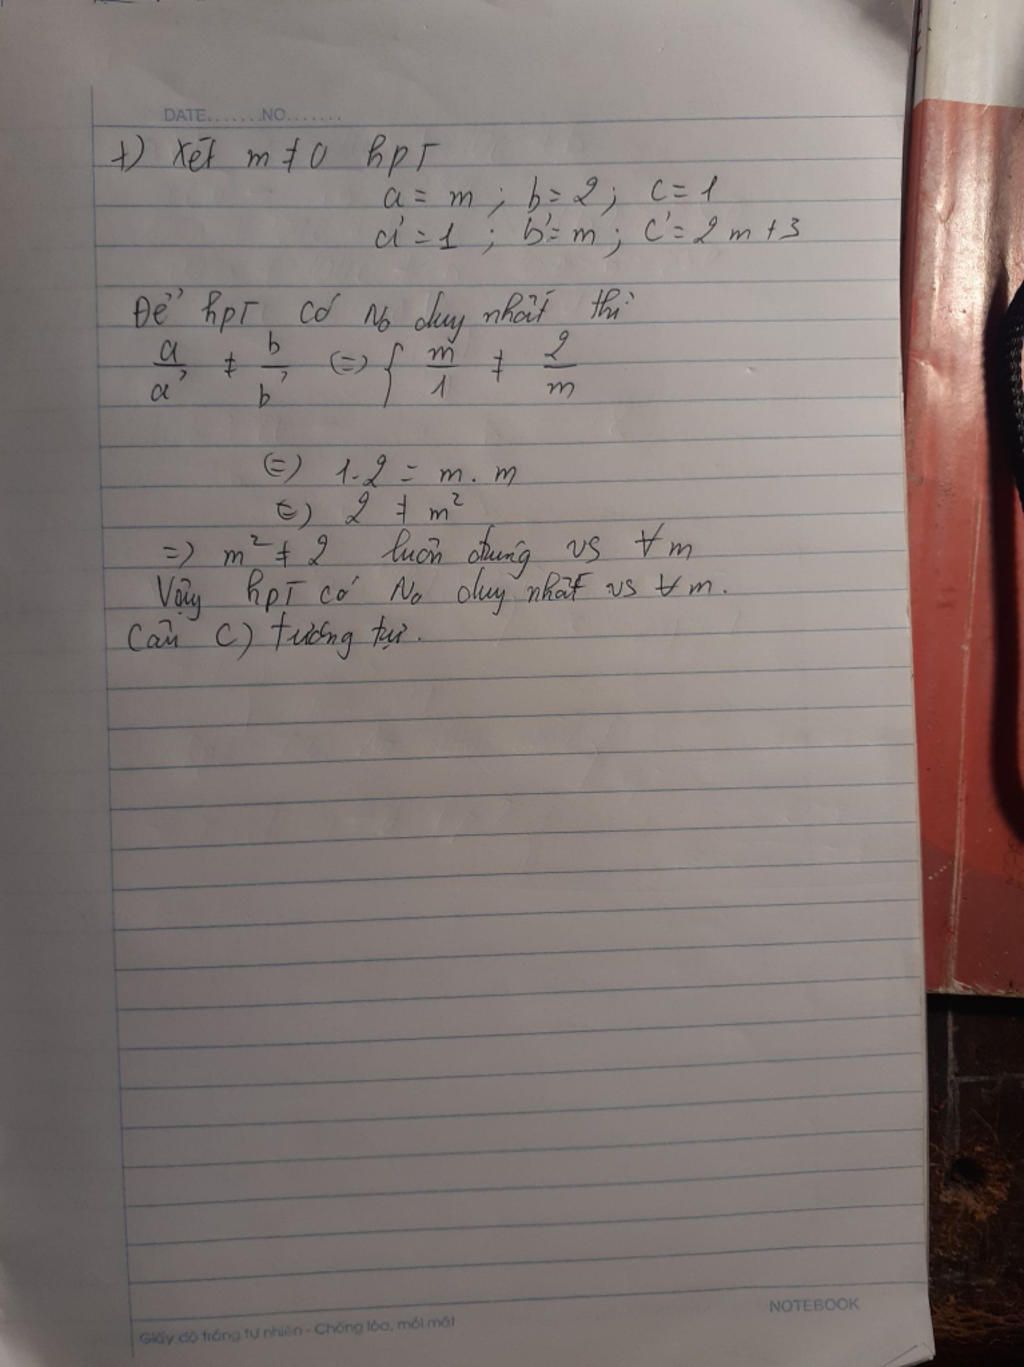 DATE.......NO.......
+) Xét m ≠ 0 hpT
a = m ; b = 2 ; c = 1
a' = 1 ; b' = m ; c' = 2m + 3
Để hpT có No duy nhất thì
a/a' ≠ b/b' (=) { m/1 ≠ 2/m
(=) 1.2 = m.m
(=) 2 ≠ m²
=) m² ≠ 2 luôn đung vs ∀m
Vậy hpT có No duy nhất vs ∀m.
Câu C) tương tự.
NOTEBOOK
Giấy độ trắng tự nhiên - Chống lóa, mỏi mắt